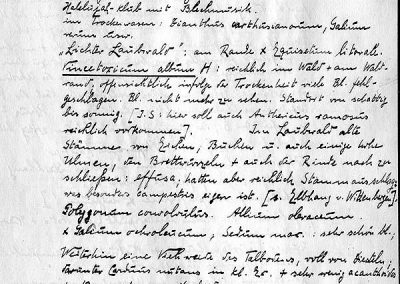 im Trockenrasen: Dianthus carthusianorum, Galium
verum usw.
"Lichter Laubwald": am Rande × Equisetum litorale.
Vincetoxicum album H: reichlich im Wald + am Wald-
rand, offensichtlich infolge der Trockenheit viele Bl. fehl-
geschlagen. Bl. nicht mehr zu sehen. Standort von schattig
bis sonnig. [J.S: hier soll auch Anthericus ramosus
reichlich vorkommen]. Im Laubwald alte
Stämme, von Eichen, Buchen u. auch einige hohe
Ulmen, den Brettwurzeln + auch der Rinde nach zu
schließen: effusa, hatten aber reichlich Stammausschläge,
was besonders campestris eigen ist. [s. Elbhang b. Wittenberge].
Polygonum convolvulus. Allium oleraceum.
× Galium ochroleucum, Sedum max.: sehr schön bl.,
Weiterhin eine Viehweide des Talbodens, voll von Disteln,
darunter Carduus nutans in kl. Ex. + sehr wenig acanthoides